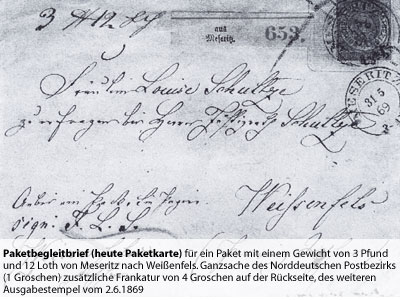 3 ℔ 12 Lth
aus
Meseritz.
653.
MESERITZ
31 5
69
Fräulein Louise Schultze
zu erfragen bei Herrn Schultze
Weissenfels
sign. F. L. S.
Paketbegleitbrief (heute Paketkarte) für ein Paket mit einem Gewicht von 3 Pfund
und 12 Loth von Meseritz nach Weißenfels. Ganzsache des Norddeutschen Postbezirks
(1 Groschen) zusätzliche Frankatur von 4 Groschen auf der Rückseite, des weiteren
Ausgabestempel vom 2.6.1869